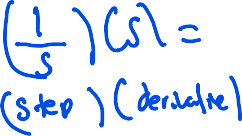 (1/s)(s) =
(step)(derivative)